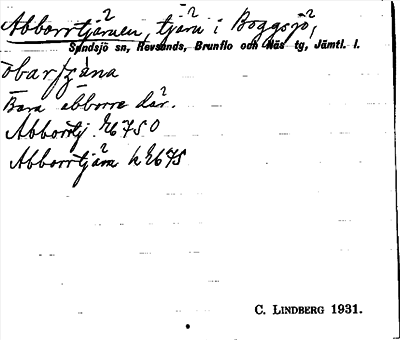 Abborrtjärnen, tjärn i Boggsjö,
Sundsjö sn, Revsunds, Brunflo och Näs tg, Jämtl. l.
Bara abborre där.
Abborrtj. E6750
Abborrtjärn h E675
C. LINDBERG 1931.